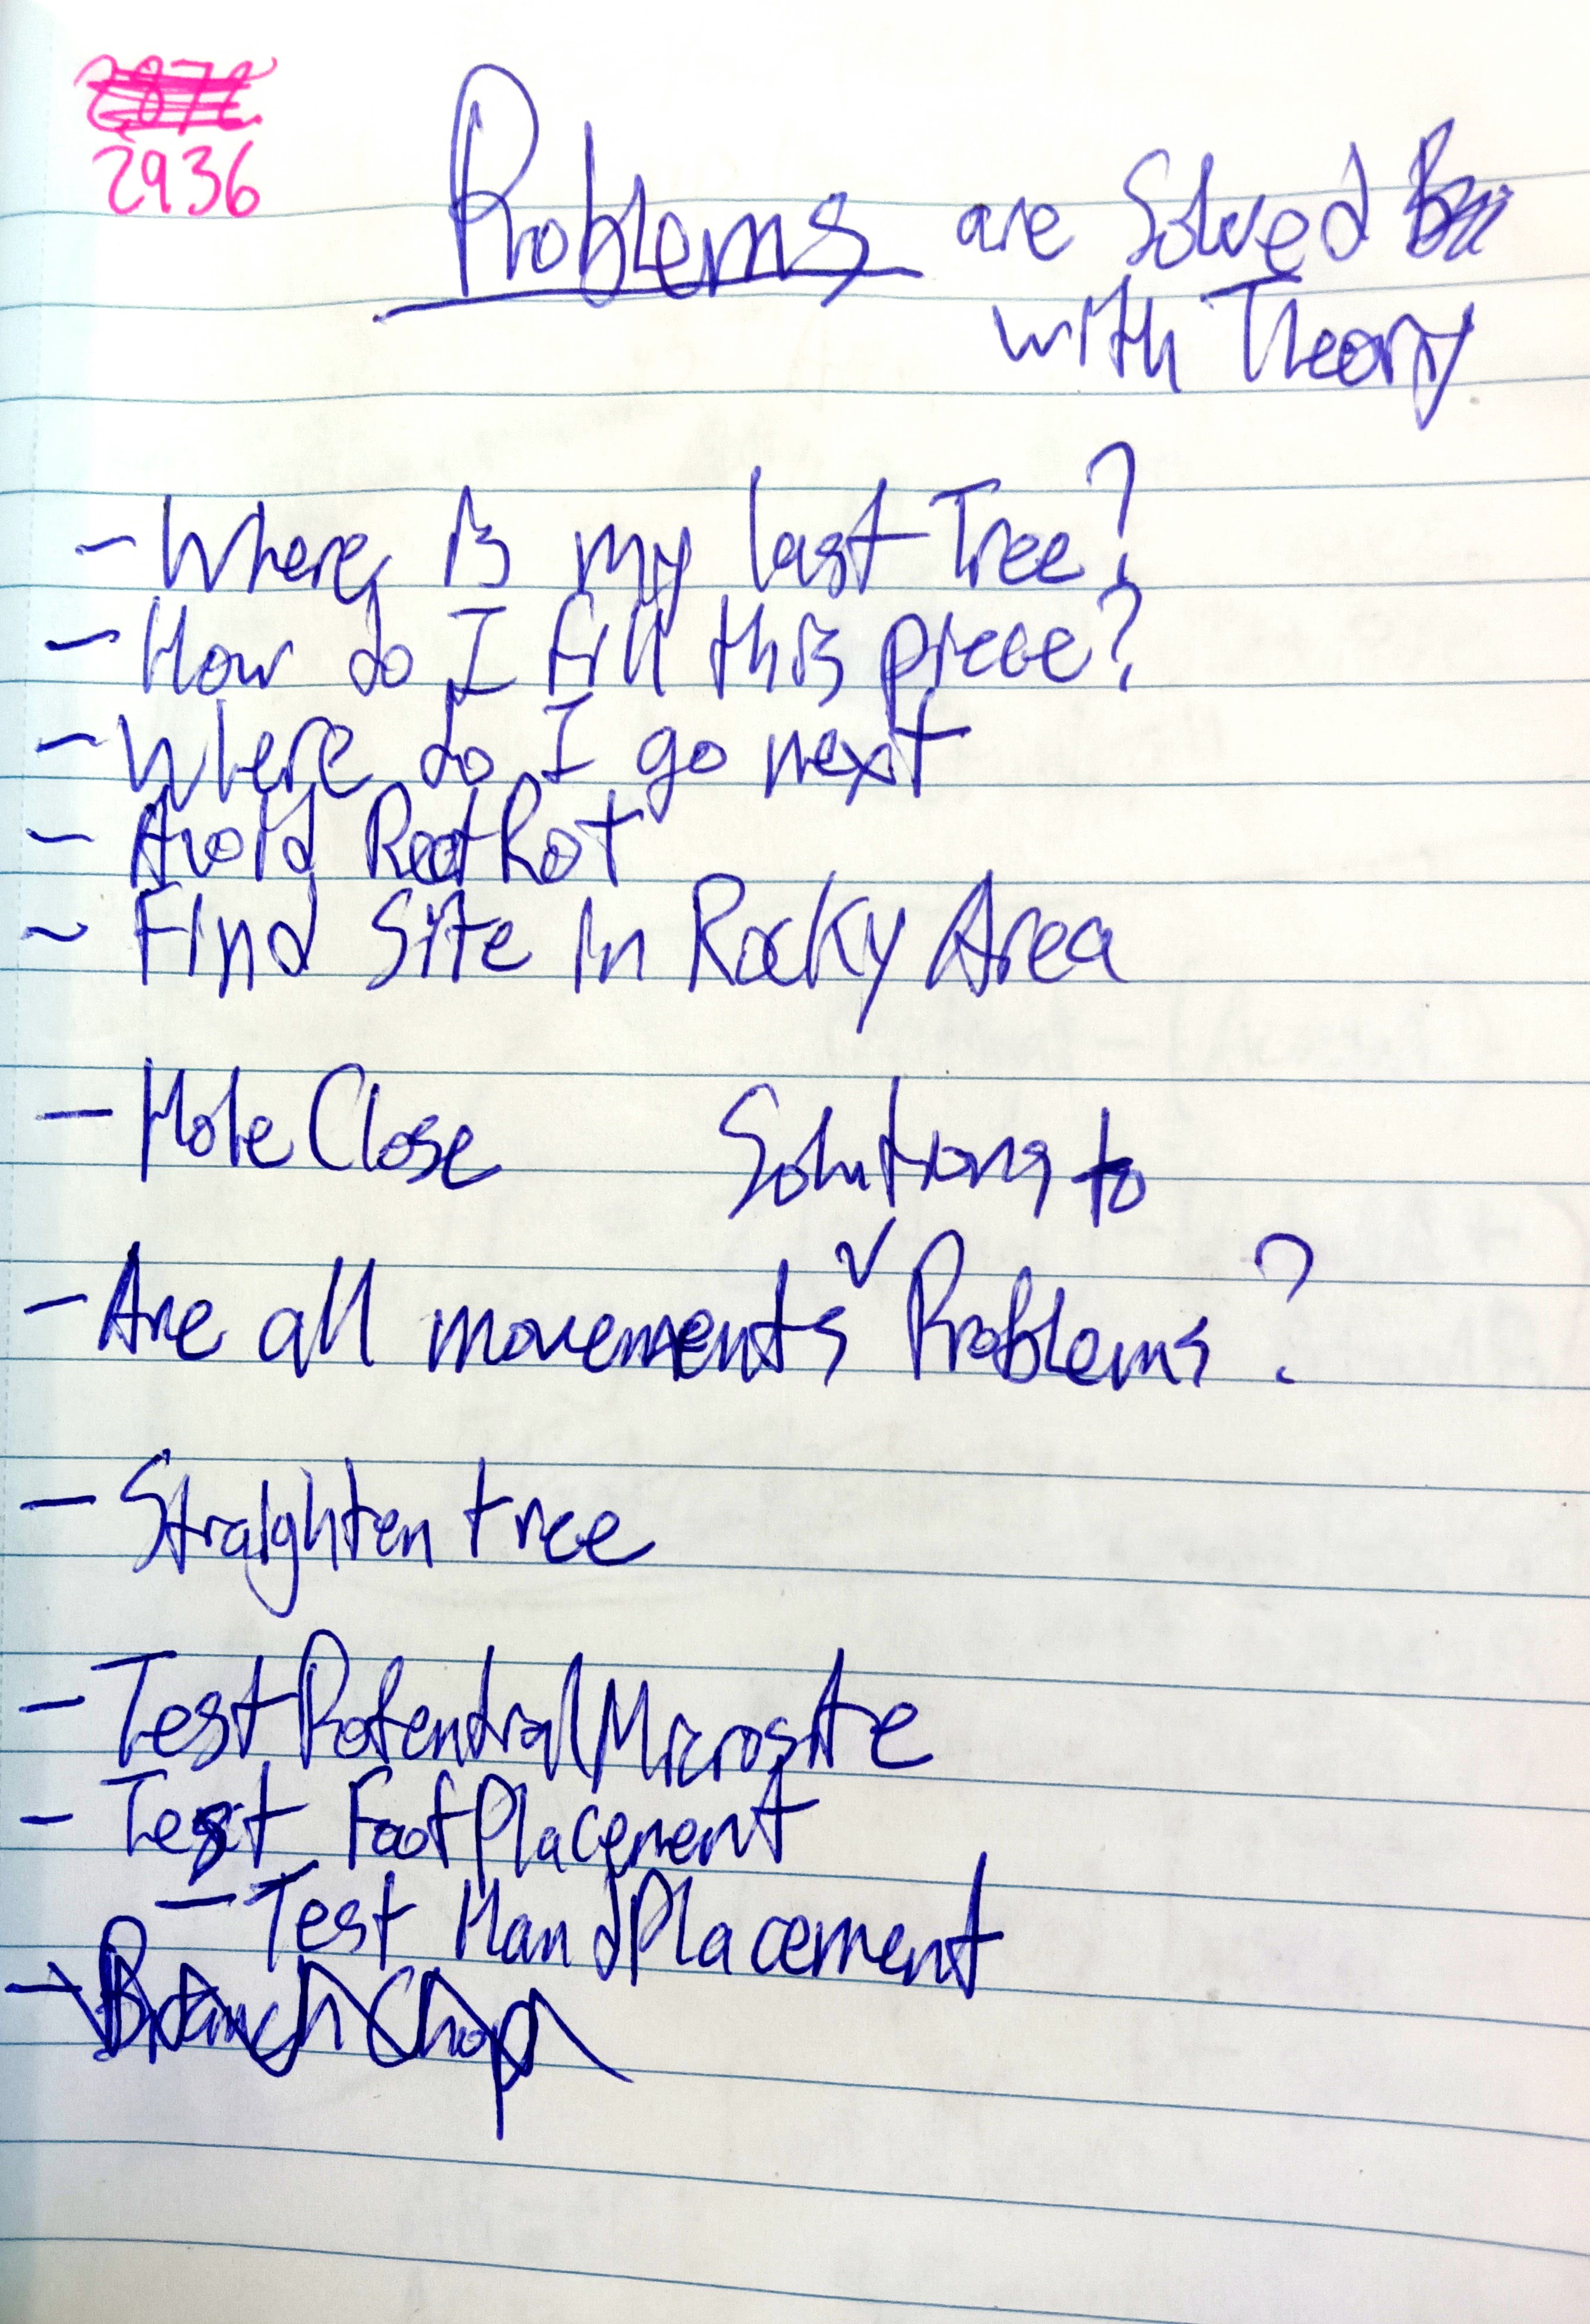 2936
Problems are Solved
with Theory
- Where is my last Tree?
- How do I fill this piece?
- Where do I go next
- Avoid Red Rot
- Find Site in Rocky Area
- Hole Close
Solutions to
- Are all movements Problems?
- Straighten tree
- Test Potential Microsite
- Test Foot Placement
- Test Hand Placement
- Branch Chop